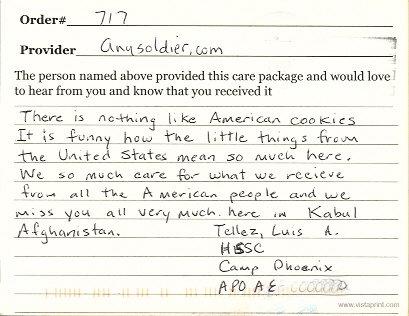 Order# 717
Provider anysoldier.com
The person named above provided this care package and would love
to hear from you and know that you received it
There is nothing like American cookies
It is funny how the little things from
the United States mean so much here.
We so much care for what we recieve
from all the American people and we
miss you all very much. here in Kabul
Afghanistan. Tellez, Luis A.
HSSC
Camp Phoenix
APO AE
www.vistaprint.com